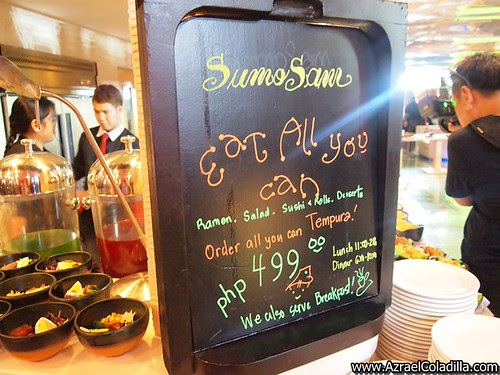 SumoSam
Eat All You
can
Ramen. Salad. Sushi & Rolls. Desserts
Order all you can Tempura!
php 499
Lunch 11:00-2:30
Dinner 6PM-10PM
We also serve Breakfast!!
www.AzraelColadilla.com